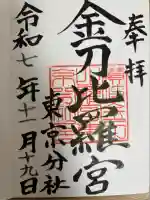 奉拝
金刀比羅宮
東京分社
令和七年十一月十九日